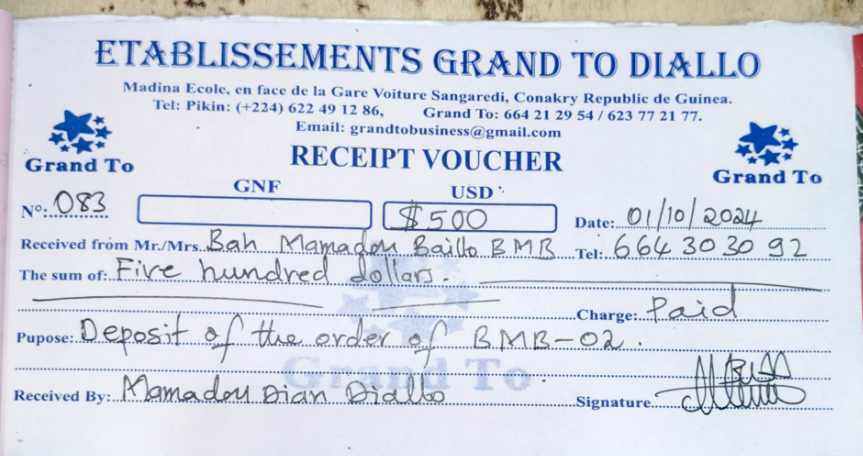 ETABLISSEMENTS GRAND TO DIALLO
Madina Ecole, en face de la Gare Voiture Sangaredi, Conakry Republic de Guinea.
Tel: Pikin: (+224) 622 49 12 86, Grand To: 664 21 29 54 / 623 77 21 77.
Email: grandtobusiness@gmail.com
Grand To RECEIPT VOUCHER Grand To
GNF USD
No: 083 $500 Date: 01/10/2024
Received from Mr./Mrs. Bah Mamadou Baillo BMB Tel: 664 30 30 92
The sum of: Five hundred dollars.
Charge: Paid
Pupose: Deposit of the order of BMB-02.
Grand To
Received By: Mamadou Dian Diallo Signature